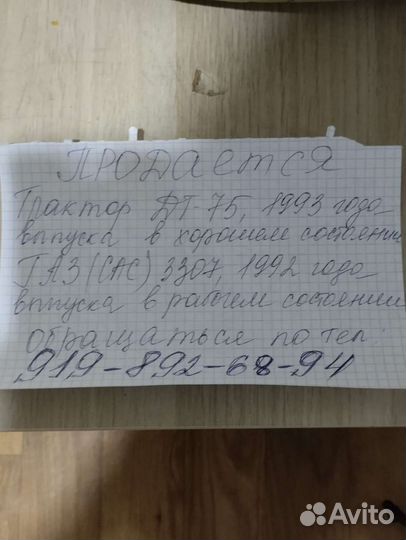 ПРОДАЕТСЯ
Трактор ДТ-75, 1993 года
выпуска в хорошем состоянии
ГАЗ (САС) 3307, 1992 года
выпуска в рабочем состоянии
обращаться по тел:
919-892-68-94
Avito